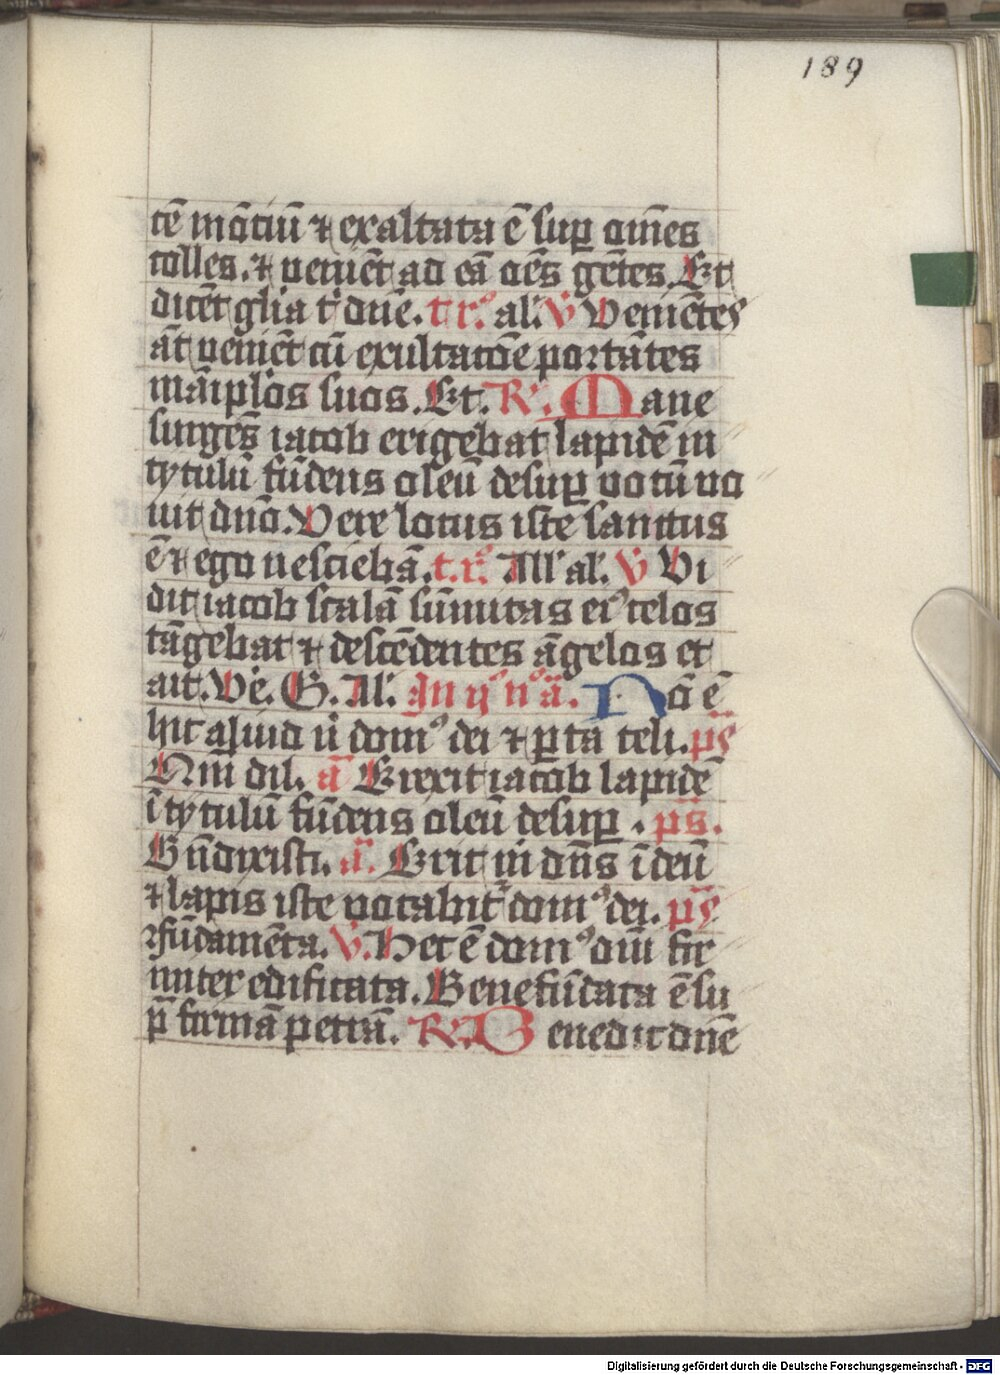 189
tē mōtiū ⁊ exaltata ē sup om̄es
colles. ⁊ veniēt ad eā oēs gētes. Et
dicēt glia t' dn̄e. t r'. al'. V Veniētes
āt veniēt cū exultacōe portātes
māiplōs suos. Et. R'. Mane
surgēs iacob erigebat lapidē in
tytulū fūdens oleū desup votū vo
uit dn̄o. Vere locus iste sanctus
ē ⁊ ego nesciebā. t. r'. All' al'. V Vi
dit iacob scalā sūmitas ei' celos
tāgebat ⁊ descēdentes āgelos et
ait. Ve. G. Al'. In ij° n° ā. Nō ē
hic aliud ū dom' dei ⁊ pta celi. ps
Nm̄ dil. ā Erexit iacob lapidē
ī tytulū fūdens oleū desup. ps.
Bn̄dixisti. ā. Erit m̄ dn̄s ī deū
⁊ lapis iste vocabit' dom' dei. ps
fūdamēta. V. Hec ē dom' dn̄i fir
miter edificata. Bene fūdata ē su
p̄ firmā petrā. R'. Benedic dn̄e
Digitalisierung gefördert durch die Deutsche Forschungsgemeinschaft - DFG